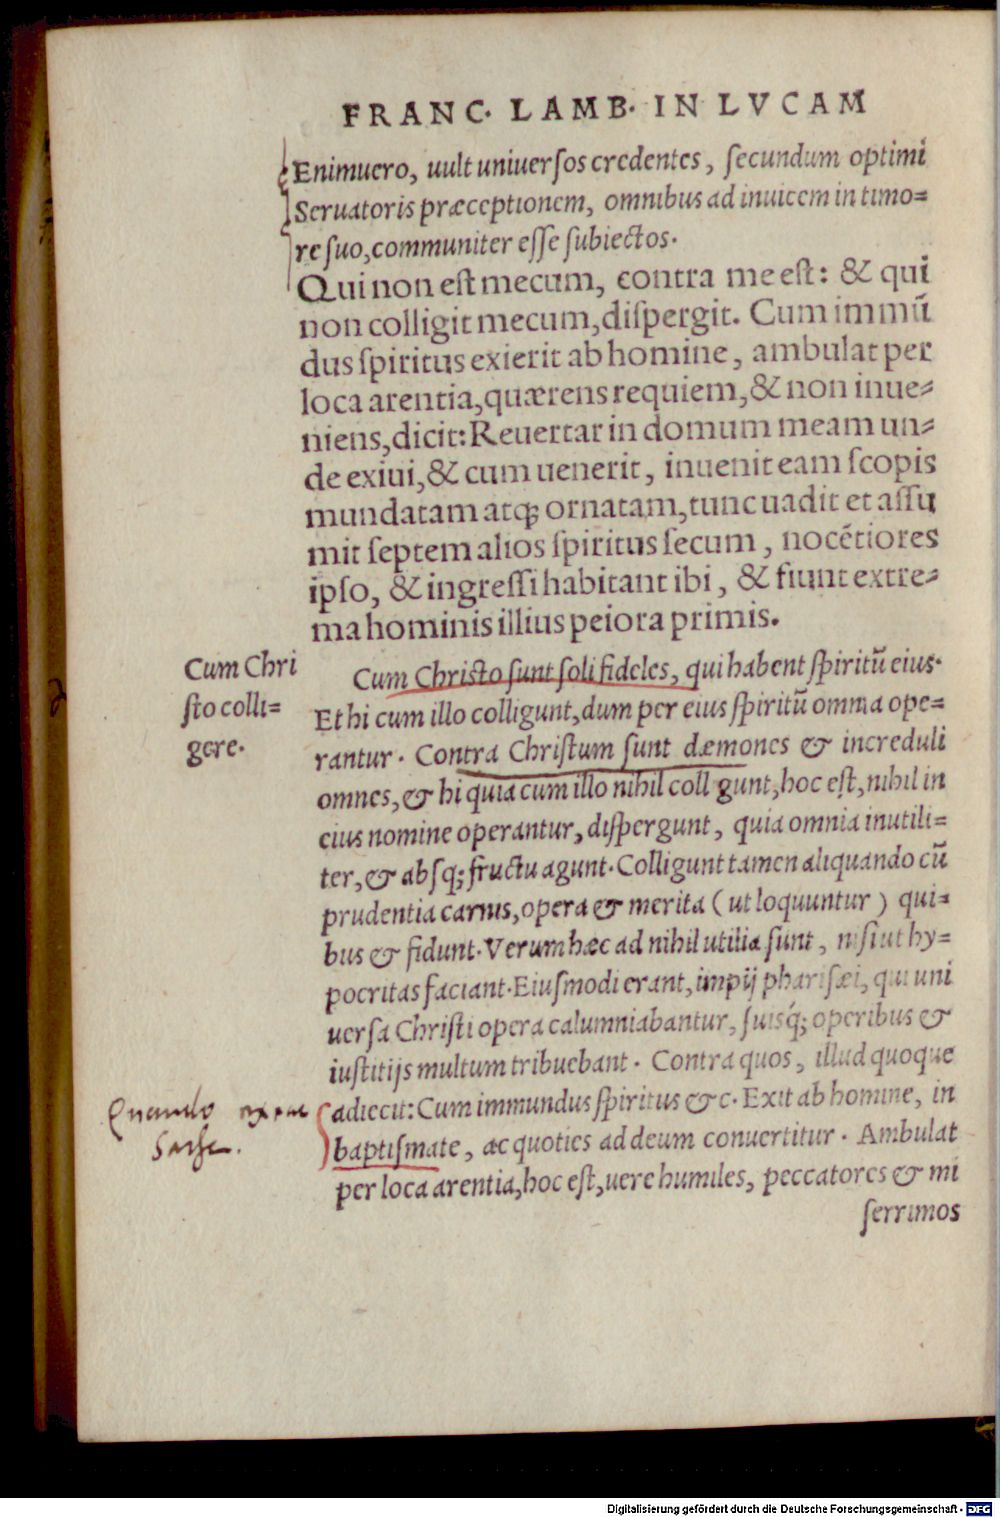 FRANC. LAMB. IN LVCAM
Enimuero, uult uniuersos credentes, secundum optimi
Seruatoris præceptionem, omnibus ad inuicem in timo=
re suo, communiter esse subiectos.
Qui non est mecum, contra me est: & qui
non colligit mecum, dispergit. Cum immũ
dus spiritus exierit ab homine, ambulat per
loca arentia, quærens requiem, & non inue=
niens, dicit: Reuertar in domum meam un=
de exiui, & cum uenerit, inuenit eam scopis
mundatam atq; ornatam, tunc uadit et assu
mit septem alios spiritus secum, nocẽtiores
ipso, & ingressi habitant ibi, & fiunt extre=
ma hominis illius peiora primis.
Cum Chri
sto colli=
gere.
Cum Christo sunt soli fideles, qui habent spiritũ eius.
Et hi cum illo colligunt, dum per eius spiritũ omnia ope=
rantur. Contra Christum sunt dæmones & increduli
omnes, & hi quia cum illo nihil coll gunt, hoc est, nihil in
eius nomine operantur, dispergunt, quia omnia inutili=
ter, & absq; fructu agunt. Colligunt tamen aliquando cũ
prudentia carnis, opera & merita (ut loquuntur) qui=
bus & fidunt. Verum hæc ad nihil utilia sunt, nisi ut hy=
pocritas faciant. Eiusmodi erant, impij pharisæi, qui uni
uersa Christi opera calumniabantur, suisq́; operibus &
iustitijs multum tribuebant. Contra quos, illud quoque
adiecit: Cum immundus spiritus &c. Exit ab homine, in
baptismate, ac quoties ad deum conuertitur. Ambulat
per loca arentia, hoc est, uere humiles, peccatores & mi
serrimos
Quando
Digitalisierung gefördert durch die Deutsche Forschungsgemeinschaft - DFG